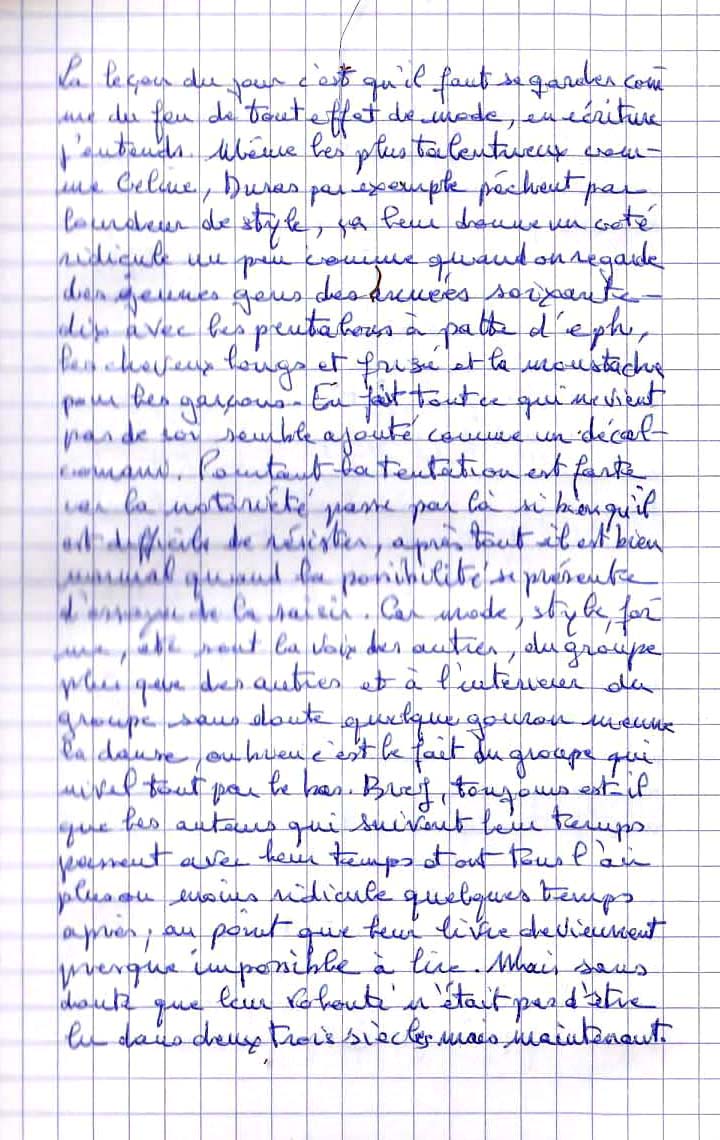 La leçon du jour c'est qu'il faut se garder com
me du feu de tout effet de mode, en écriture
j'entends. Même les plus talentueux com-
me Celine, Duras par exemple pèchent par
lourdeur de style, ça leur donne un coté
ridicule un peu comme quand on regarde
des jeunes gens des années soixante-
dix avec les pentalons à patte d'eph,
les cheveux longs et frisé et la moustache
pour les garçons. En fait tout ce qui ne vient
pas de soi semble ajouté comme un décal-
comanie. Pourtant la tentation est forte
car la notoriété passe par là si bien qu'il
est difficile de résister, après tout il est bien
normal quand la possibilité se présente
d'essayer de la saisir. Car mode, style, for
me, etc sont la voix des autres, du groupe
plus que des autres et à l'interieur du
groupe sans doute quelque gourou meune
la danse, ou bien c'est le fait du groupe qui
nivel tout par le bas. Bref, toujours est-il
que les auteurs qui suivent leur temps
passent avec leur temps et ont tous l'air
plus ou moins ridicule quelques temps
après, au point que leur livre deviennent
presque impossible à lire. Mais sans
doute que leur volonté n'était pas d'être
lu dans deux trois siècles mais maintenant.